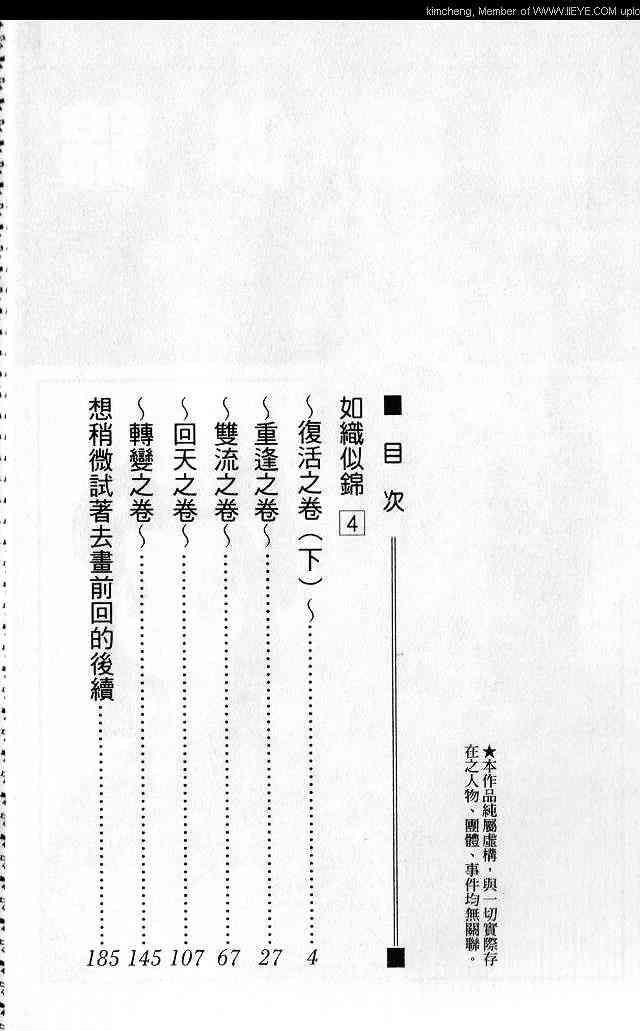 kimcheng, Member of WWW.IIEYE.COM uplo
★本作品純屬虛構，與一切實際存
在之人物、團體、事件均無關聯。
■目次■
如織似錦 4
～復活之卷（下）～……4
～重逢之卷～……27
～雙流之卷～……67
～回天之卷～……107
～轉變之卷～……145
想稍微試著去畫前回的後續……185